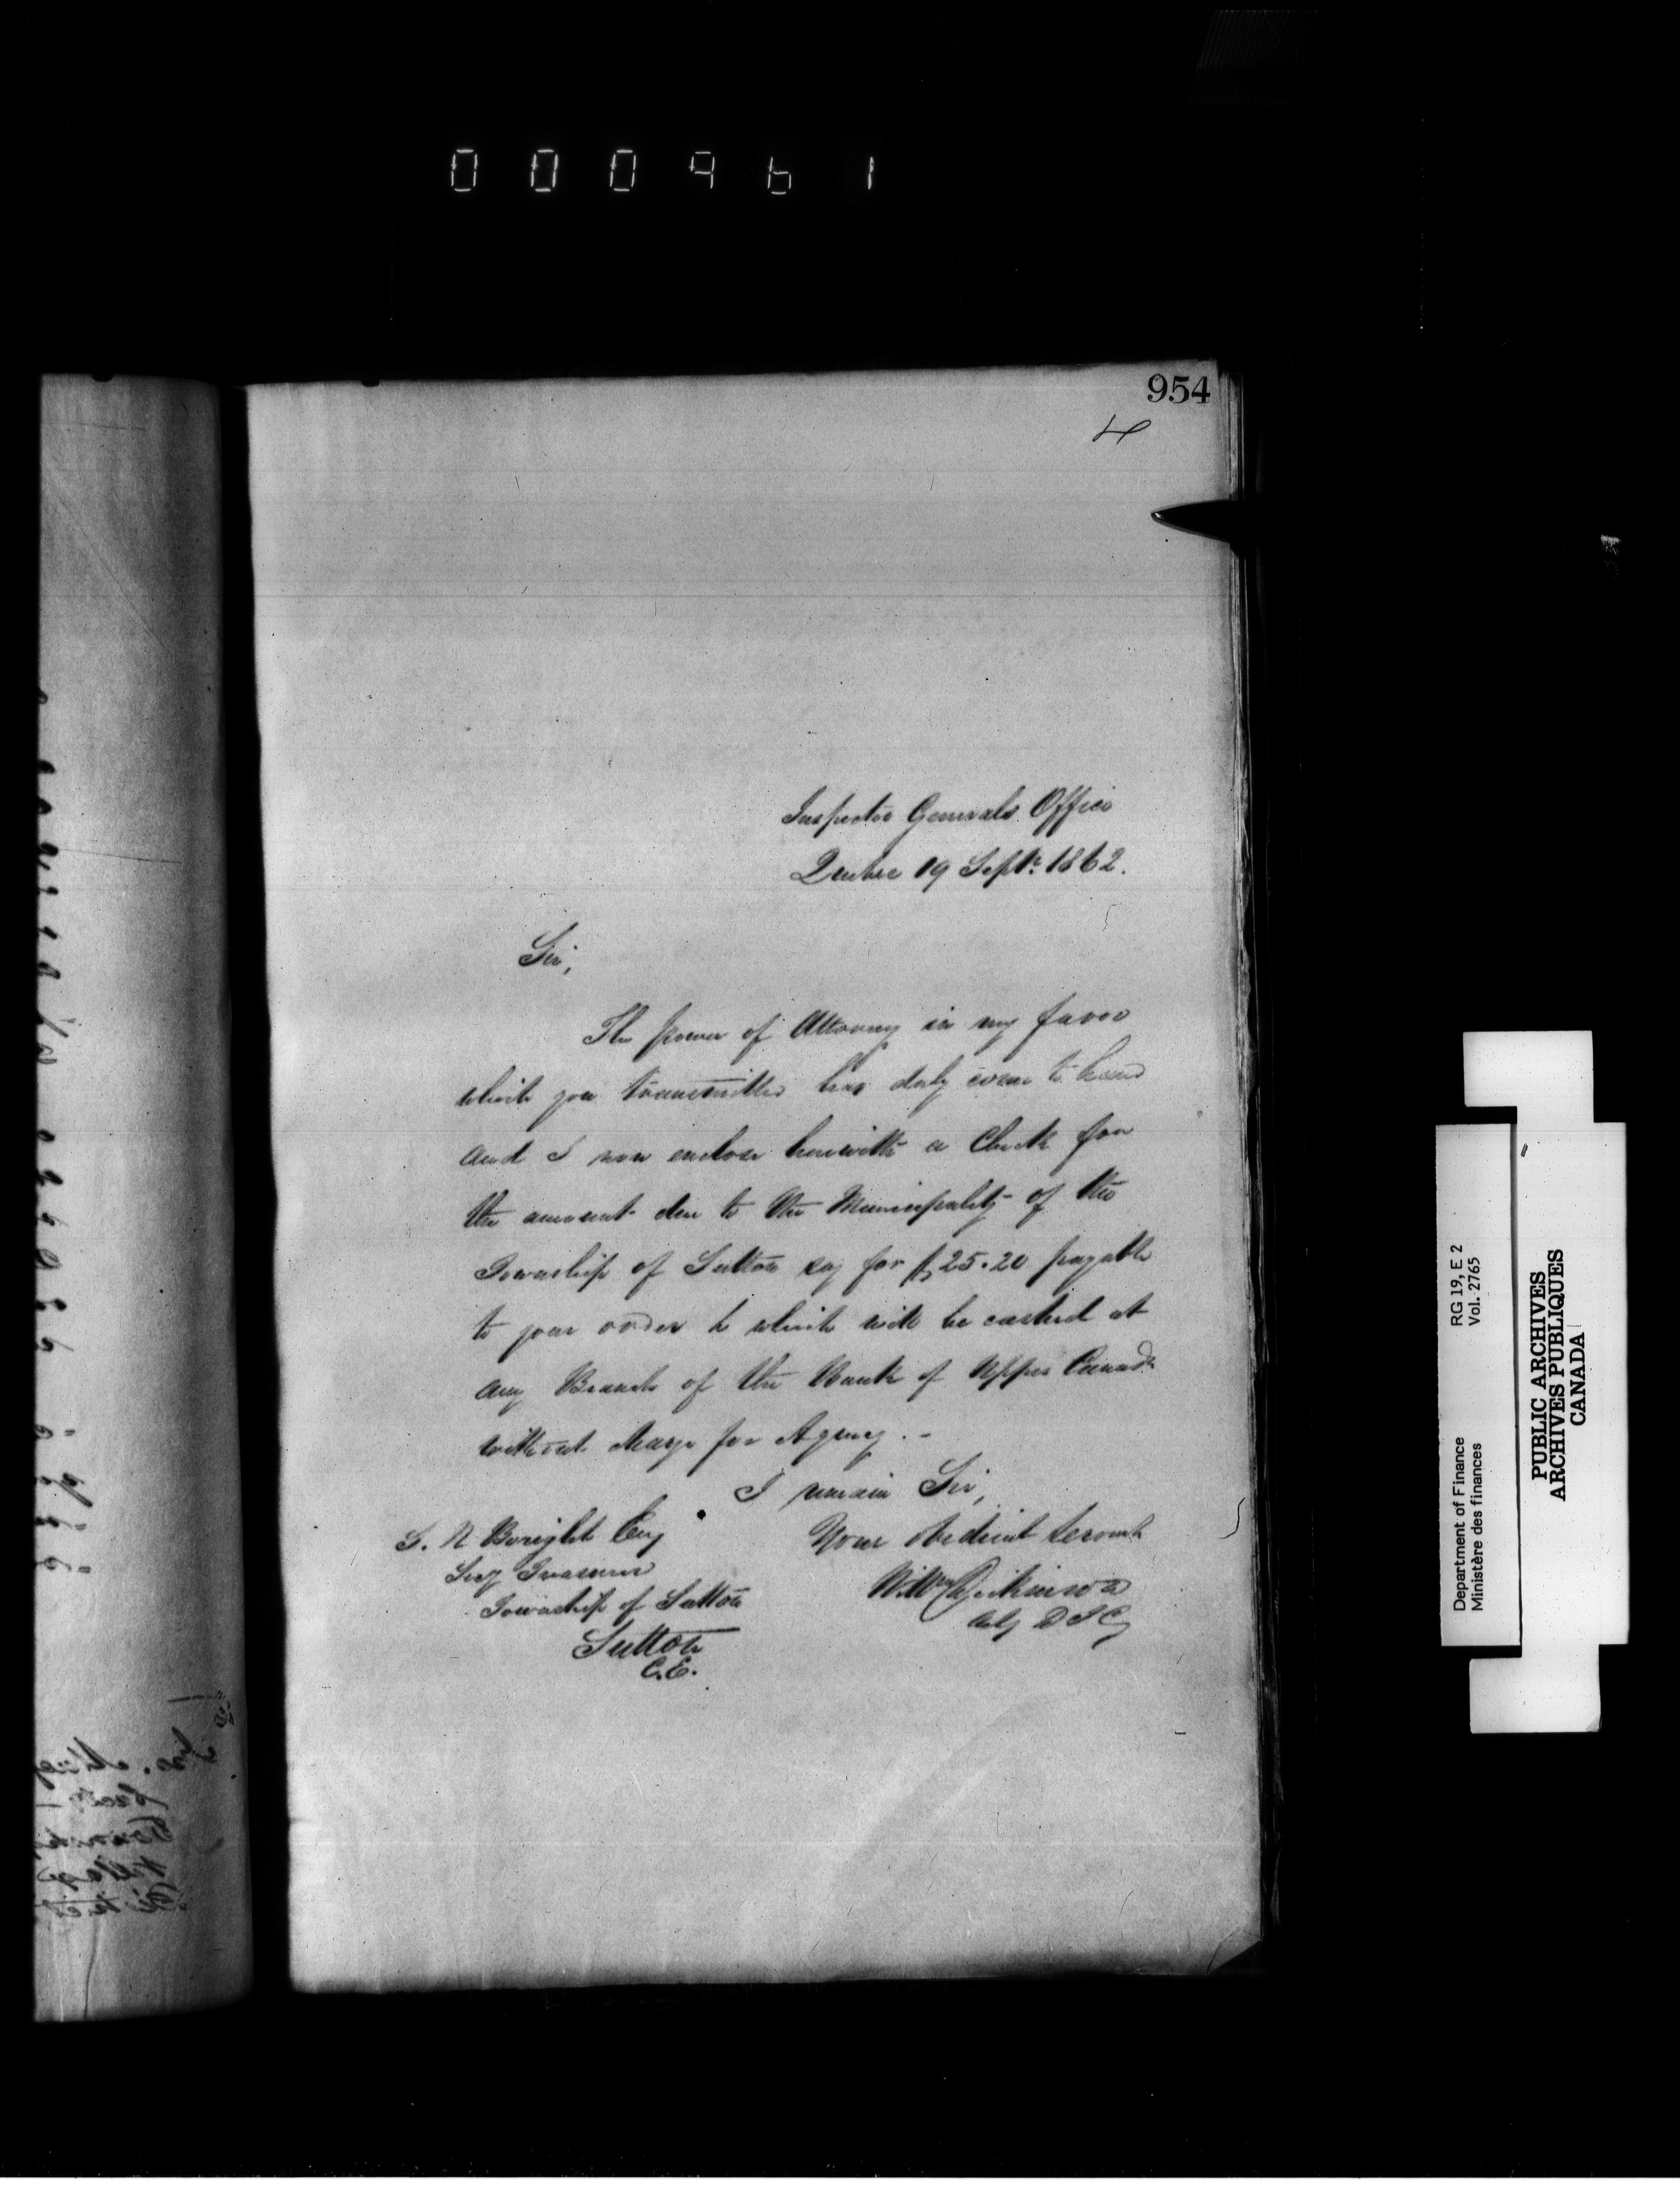 000961
954
4
Inspector Generals Office
Quebec 19 Sept. 1862.
Sir,
The power of Attorney in my favor
which you transmitted has duly come to hand
and I now enclose herewith a Check for
the amount due to the Municipality of the
Township of Sutton say for $25.20 payable
to your order & which will be cashed at
any Branch of the Bank of Upper Canada
without charge for Agency. -
I remain Sir,
Your obedient Servant
Willm Dickinson
Actg D I G
Boright Esq
Secy Treasurer
Township of Sutton
Sutton
C.E.
Department of Finance RG 19, E 2
Ministère des finances Vol. 2765
PUBLIC ARCHIVES
ARCHIVES PUBLIQUES
CANADA